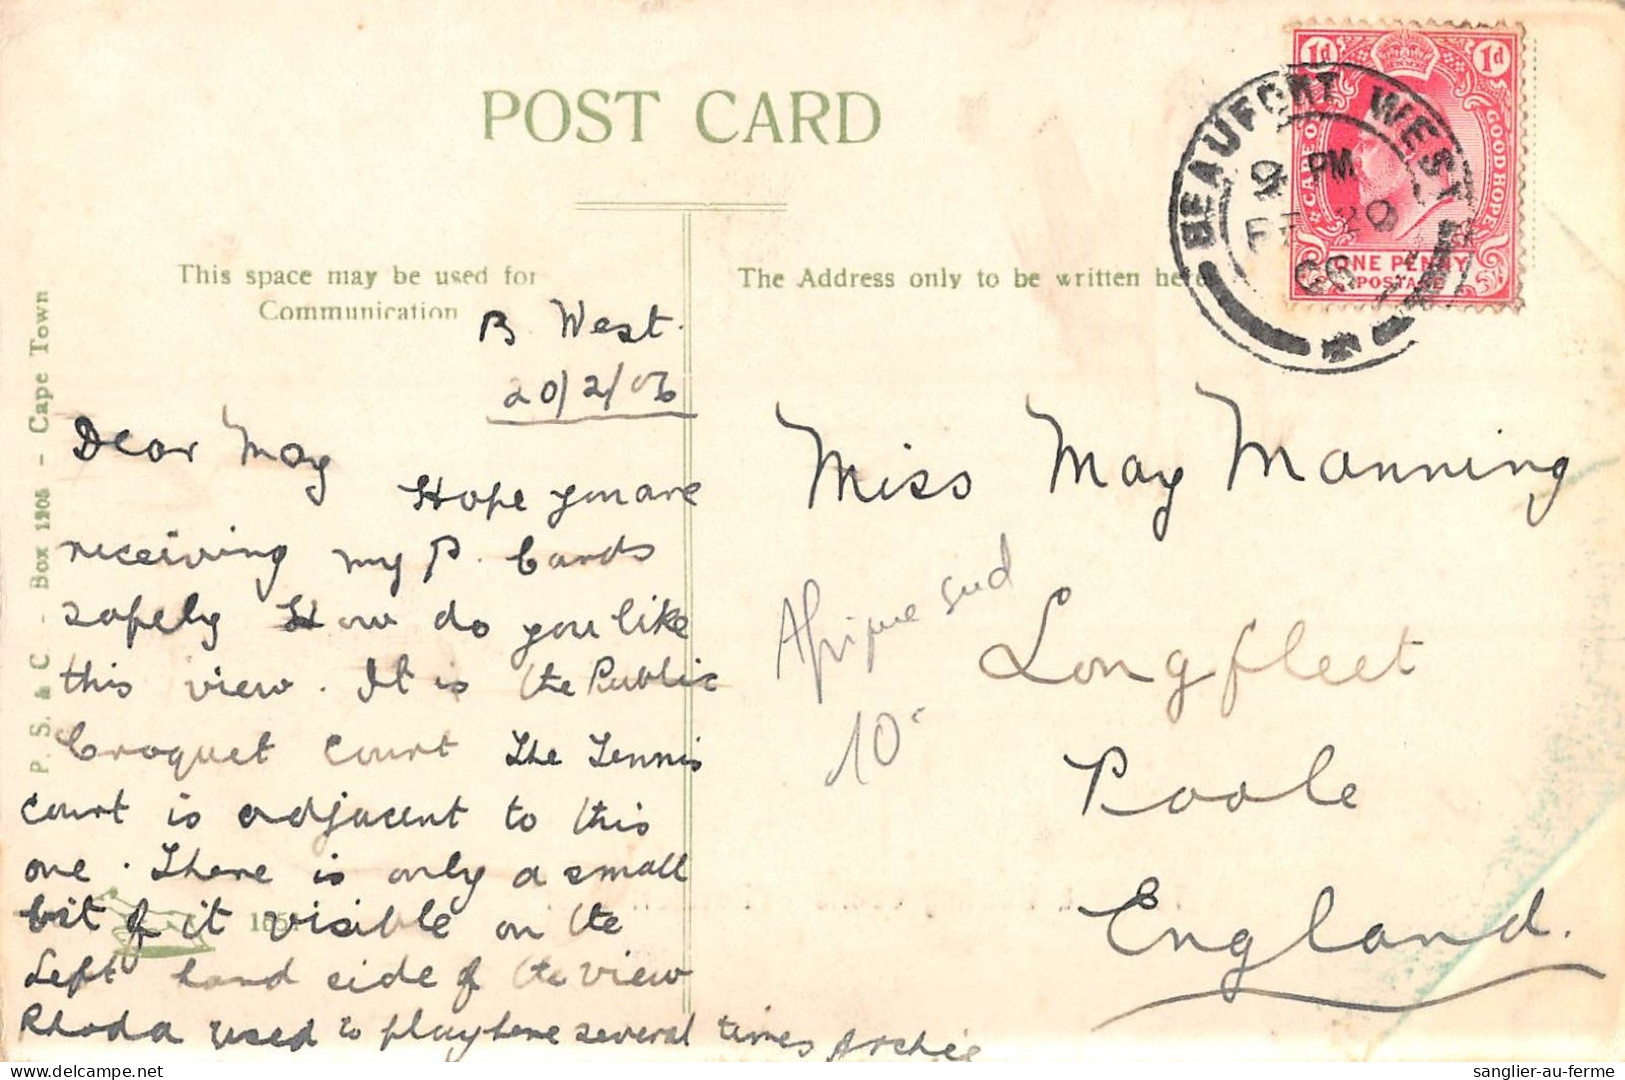 POST CARD
This space may be used for
Communication
The Address only to be written here
P. S. & C. - Box 1205 - Cape Town
1d 1d
CAPE OF GOOD HOPE
ONE PENNY
POSTAGE
BEAUFORT WEST
9 PM
FE 20
06
B. West.
20/2/06
Dear May
Hope you are
receiving my P. Cards
safely How do you like
this view. It is the Public
Croquet Court The Tennis
Court is adjacent to this
one. There is only a small
bit of it visible on the
Left hand side of the view
Rhoda used to play here several times Archie
Miss May Manning
Longfleet
Poole
England.
Afrique sud
10
sanglier-au-ferme.com